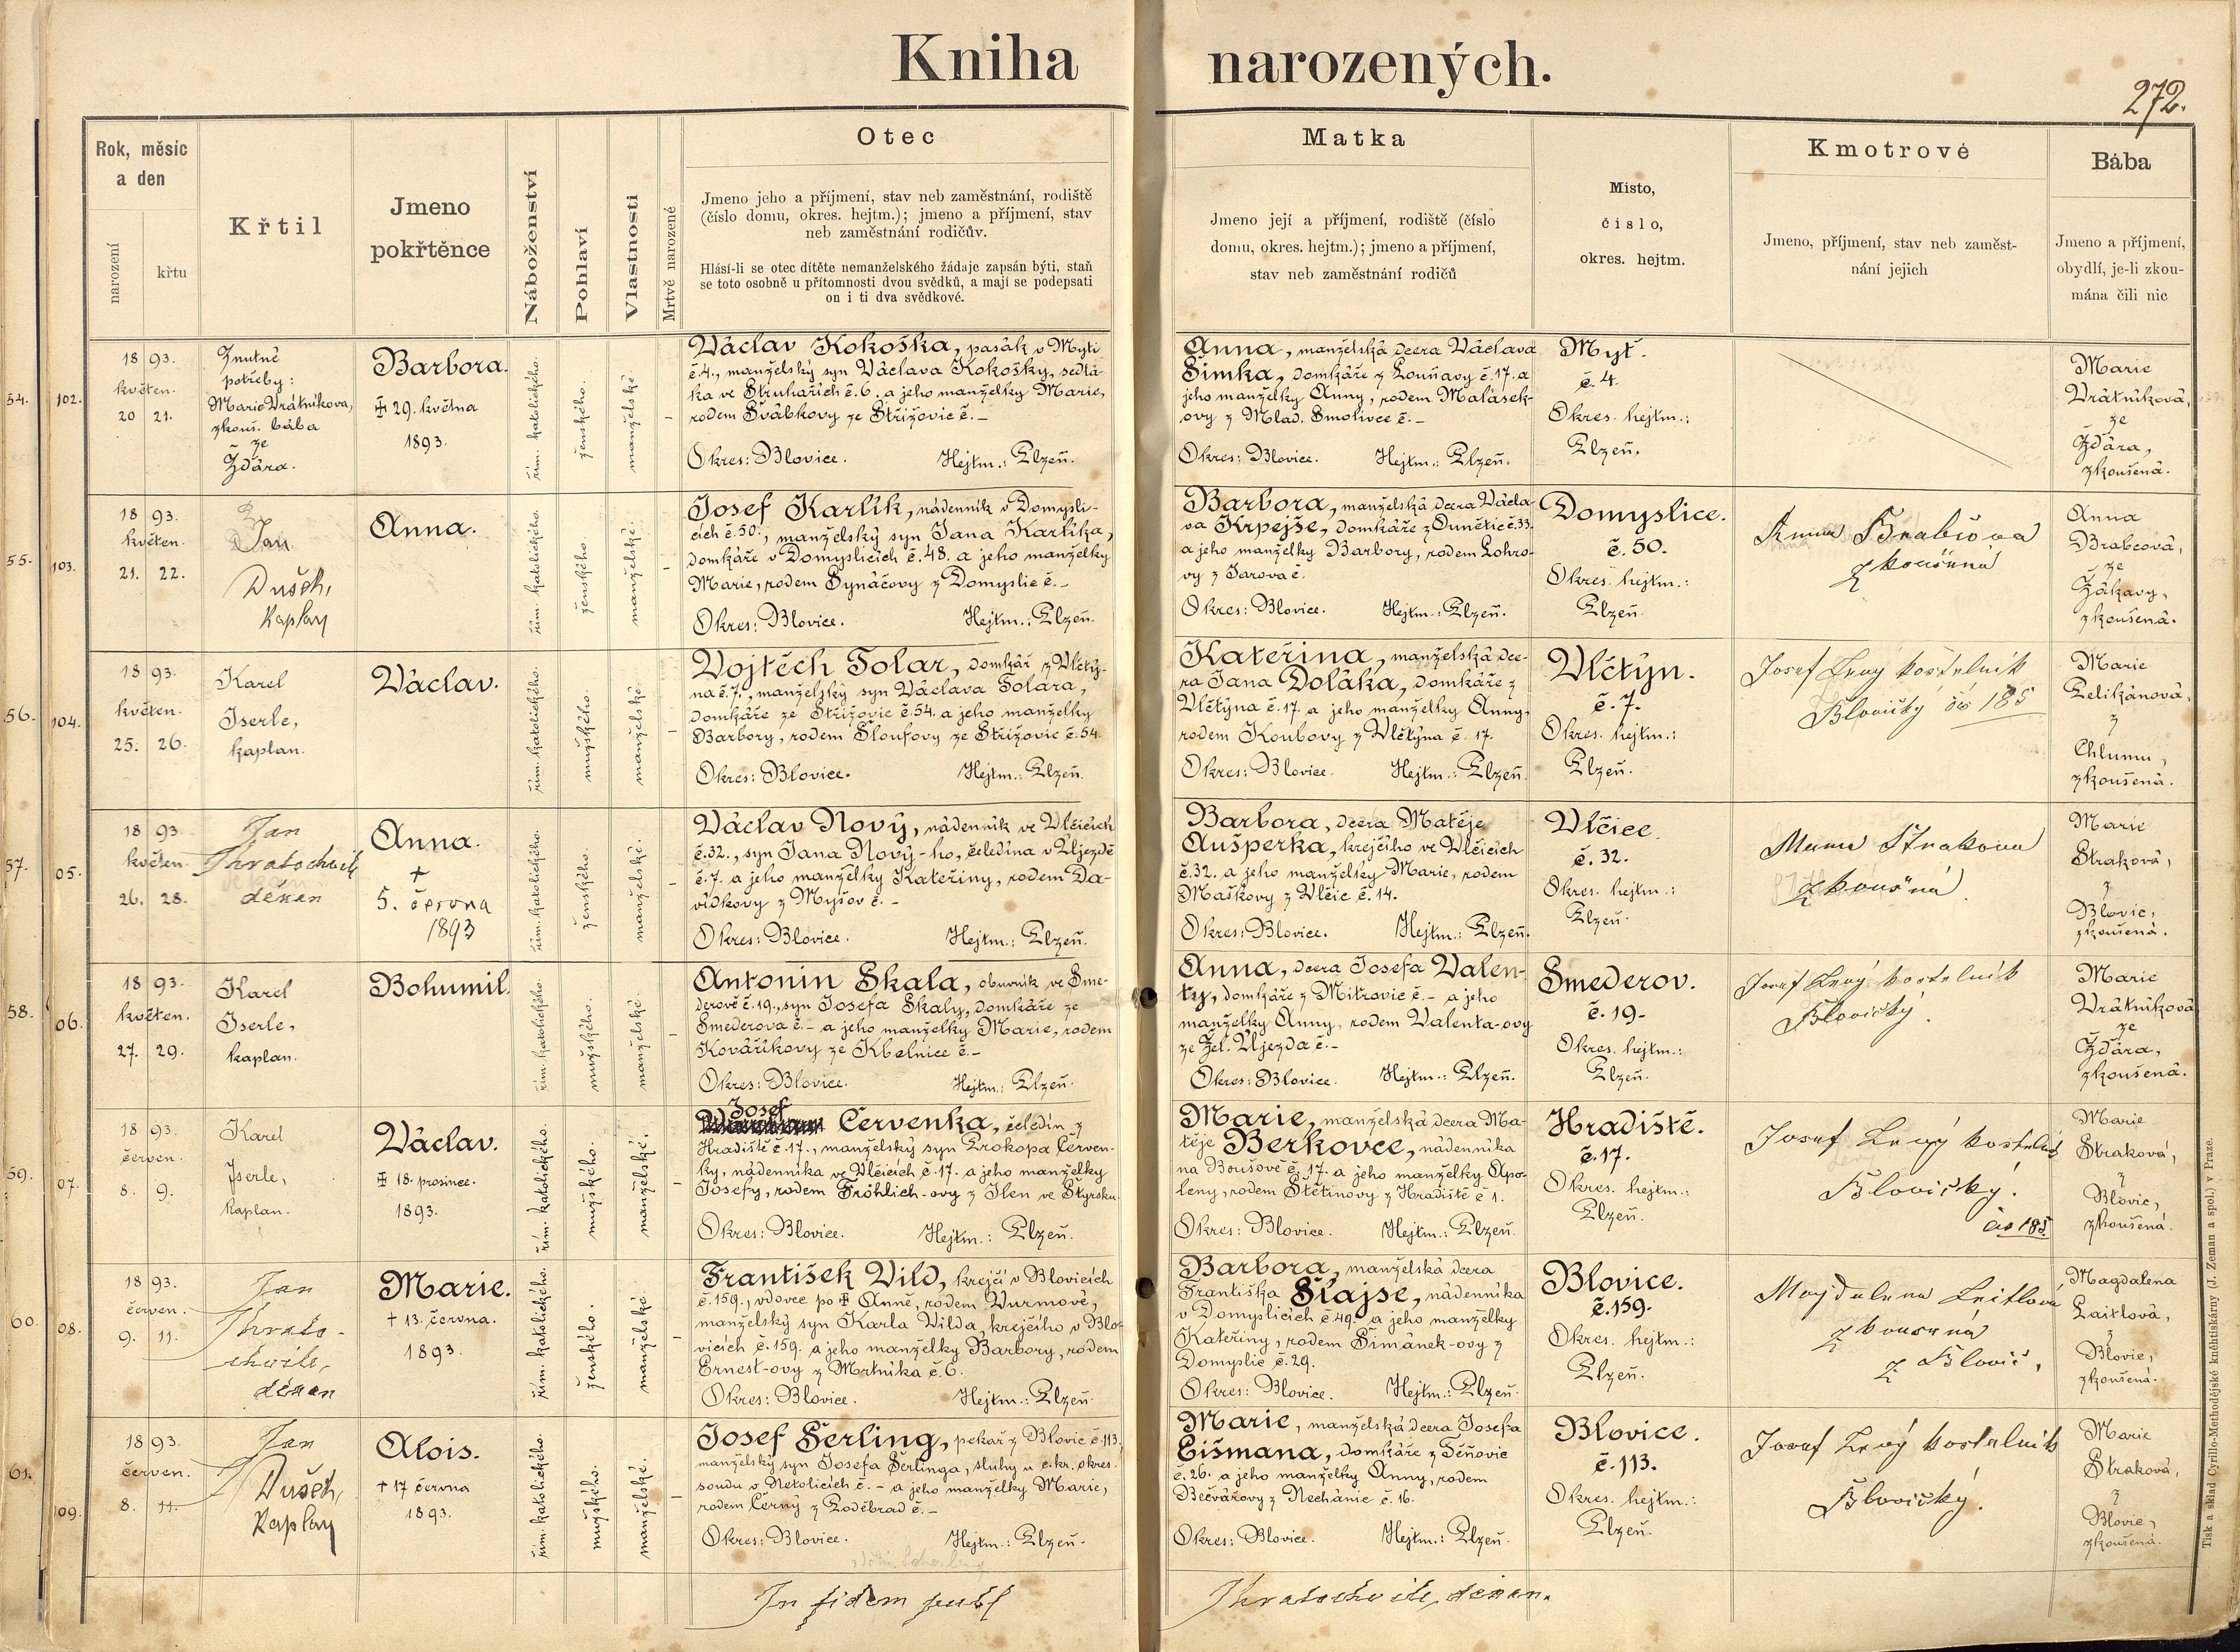 Kniha narozených.
272.
Rok, měsíc
a den
narození
křtu
Křtil
Jmeno
pokřtěnce
Náboženství
Pohlaví
Vlastnosti
Mrtvě narozené
Otec
Jmeno jeho a příjmení, stav neb zaměstnání, rodiště
(číslo domu, okres. hejtm.); jmeno a příjmení, stav
neb zaměstnání rodičův.
Hlásí-li se otec dítěte nemanželského žádaje zapsán býti, staň
se toto osobně u přítomnosti dvou svědků, a mají se podepsati
on i ti dva svědkové.
Matka
Jmeno její a příjmení, rodiště (číslo
domu, okres. hejtm.); jmeno a příjmení,
stav neb zaměstnání rodičů
Místo,
číslo,
okres. hejtm.
Kmotrové
Jmeno, příjmení, stav neb zaměst-
nání jejich
Bába
Jmeno a příjmení,
obydlí, je-li zkou-
mána čili nic
54.
102.
18 93.
květen.
20 21.
Z nutné
potřeby:
Marie Vrátníkova,
zkouš. bába
ze
Žďára.
Barbora.
29. května
1893.
řím. katolického.
ženského.
manželské.
-
Václav Kokoška, pasák v Myti
č.4., manželský syn Václava Kokošky, sedlá-
ka ve Struhařích č.6. a jeho manželky Marie,
rodem Švábkovy ze Střížovic č.-
Okres: Blovice. Hejtm.: Plzeň.
Anna, manželská dcera Václava
Šimka, domkáře z Louňavy č.17. a
jeho manželky Anny, rodem Malásek-
ovy z Mlad. Smolivce č.-
Okres: Blovice. Hejtm.: Plzeň.
Myť.
č.4.
Okres. hejtm.:
Plzeň.
Marie
Vrátníková,
ze
Žďára,
zkoušená.
55.
103.
18 93.
květen.
21. 22.
Jan
Dušek,
Kaplan
Anna.
řím. katolického.
ženského.
manželské.
-
Josef Karlík, nádenník v Domysli-
cích č.50., manželský syn Jana Karlíka,
domkáře v Domyslicích č.48. a jeho manželky
Marie, rodem Synáčovy z Domyslic č.-
Okres: Blovice. Hejtm.: Plzeň.
Barbora, manželská dcera Václa-
va Krpejše, domkáře z Dunětic č.33.
a jeho manželky Barbory, rodem Lohro-
vy z Jarova č.
Okres: Blovice. Hejtm.: Plzeň.
Domyslice.
č.50.
Okres. hejtm.:
Plzeň.
Anna Brabcova
zkoušená
Anna
Brabcová,
ze
Žákavy,
zkoušená.
56.
104.
18 93.
květen.
25. 26.
Karel
Iserle,
kaplan.
Václav.
řím. katolického.
mužského.
manželské.
-
Vojtěch Tolar, domkář z Vlčtý-
na č.7., manželský syn Václava Tolara,
domkáře ze Střížovic č.54. a jeho manželky
Barbory, rodem Sloufovy ze Střížovic č.54.
Okres: Blovice. Hejtm.: Plzeň.
Kateřina, manželská dce-
ra Jana Doláka, domkáře z
Vlčtýna č.17. a jeho manželky Anny,
rodem Koubovy z Vlčtýna č. 17.
Okres: Blovice. Hejtm.: Plzeň.
Vlčtýn.
č.7.
Okres. hejtm.:
Plzeň.
Josef Levý kostelník
Blovický čís 185
Marie
Pelikánová,
z
Chlumu,
zkoušená.
57.
05.
18 93.
květen.
26. 28.
Jan
Chratochvile
děkan
Anna.
+
5. června
1893
řím. katolického.
ženského.
manželské.
-
Václav Nový, nádenník ve Vlčicích
č.32., syn Jana Nový-ho, čeledína v Újezdě
č.7. a jeho manželky Kateřiny, rodem Da-
vídkovy z Myšov č.-
Okres: Blovice. Hejtm.: Plzeň.
Barbora, dcera Matěje
Aušperka, krejčího ve Vlčicích
č.32. a jeho manželky Marie, rodem
Maškovy z Vlčic č.14.
Okres: Blovice. Hejtm.: Plzeň.
Vlčice.
č.32.
Okres. hejtm.:
Plzeň.
Strakova
zkoušná.
Marie
Straková,
z
Blovic,
zkoušená.
58.
06.
18 93.
květen.
27. 29.
Karel
Iserle,
kaplan.
Bohumil.
řím. katolického.
mužského.
manželské.
-
Antonín Skala, obuvník ve Sme-
derově č.19., syn Josefa Skaly, domkáře ze
Smederova č.- a jeho manželky Marie, rodem
Kovaříkovy ze Kbelnice č.-
Okres: Blovice. Hejtm.: Plzeň.
Anna, dcera Josefa Valen-
ty, domkáře z Mitrovic č.- a jeho
manželky Anny, rodem Valenta-ovy
ze Žel. Újezda č.-
Okres: Blovice. Hejtm.: Plzeň.
Smederov.
č.19-
Okres. hejtm.:
Plzeň.
Josef Levý kostelník
Blovický.
Marie
Vrátníková
ze
Žďára,
zkoušená.
59.
07.
18 93.
červen.
8. 9.
Karel
Iserle,
kaplan.
Václav.
18. prosince.
1893.
řím. katolického.
mužského.
manželské.
-
Josef
Červenka, čeledín z
Hradiště č.17., manželský syn Prokopa Červen-
ky, nádenníka ve Vlčicích č.17. a jeho manželky
Josefy, rodem Fröhlich-ovy z Ilen ve Štyrsku.
Okres: Blovice. Hejtm.: Plzeň.
Marie, manželská dcera Ma-
těje Berkovce, nádenníka
na Boušově č.17. a jeho manželky Apo-
leny, rodem Štětinovy z Hradiště č 1.
Okres: Blovice. Hejtm.: Plzeň.
Hradiště.
č.17.
Okres. hejtm.:
Plzeň.
Josef Levý kostelník
Blovický.
čís 185
Marie
Straková,
z
Blovic,
zkoušená.
60.
08.
18 93.
červen.
9. 11.
Jan
Chrato-
chvile,
děkan
Marie.
+ 13. června.
1893.
řím. katolického.
ženského.
manželské
-
František Vild, krejčí v Blovicích
č.159., vdovec po Anně, rodem Wurmové,
manželský syn Karla Vilda, krejčího v Blo-
vicích č.159. a jeho manželky Barbory, rodem
Ernest-ovy z Mortníka č.6.
Okres: Blovice. Hejtm.: Plzeň.
Barbora, manželská dcera
Františka Šlajse, nádenníka
v Domyslicích č.49. a jeho manželky
Kateřiny, rodem Šimánek-ovy z
Domyslic č.29.
Okres: Blovice. Hejtm.: Plzeň.
Blovice.
č.159.
Okres. hejtm.:
Plzeň.
Majdalena Leitlová
zkoušená
z Blovic.
Magdalena
Laitlová,
z
Blovic,
zkoušená.
61.
109.
18 93.
červen.
8. 11.
Jan
Dušek,
Kaplan
Alois.
+ 17 června
1893.
řím. katolického.
mužského.
manželské.
-
Josef Šerling, pekař z Blovic č.113.
manželský syn Josefa Šerlinga, sluhy u c.kr. okres.
soudu v Netolicích č.- a jeho manželky Marie,
rodem Černý z Poděbrad č.-
Okres: Blovice. Hejtm.: Plzeň.
Marie, manželská dcera Josefa
Eišmana, domkáře z Těňovic
č.26. a jeho manželky Anny, rodem
Bečvářovy z Nechánic č.16.
Okres: Blovice. Hejtm.: Plzeň.
Blovice.
č.113.
Okres. hejtm.:
Plzeň.
Josef Levý kostelník
Blovický.
Marie
Straková,
z
Blovic,
zkoušená.
In fidem publ
Chratochvile, děkan.
Tisk a sklad Cyrillo-Methodějské knihtiskárny (J. Zeman a spol.) v Praze.